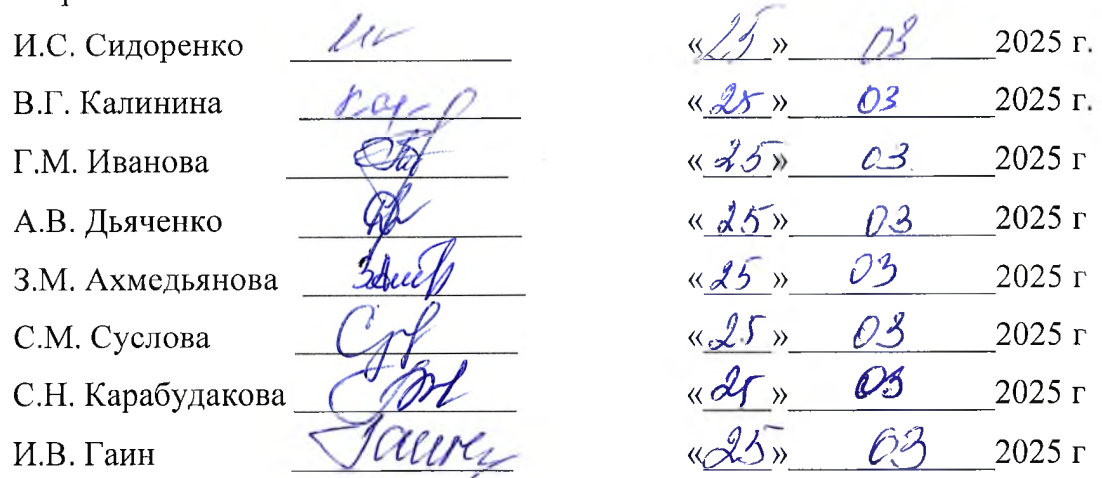 И.С. Сидоренко «25» 03 2025 г.
В.Г. Калинина «25» 03 2025 г.
Г.М. Иванова «25» 03 2025 г
А.В. Дьяченко «25» 03 2025 г
З.М. Ахмедьянова «25» 03 2025 г
С.М. Суслова «25» 03 2025 г
С.Н. Карабудакова «25» 03 2025 г
И.В. Гаин «25» 03 2025 г